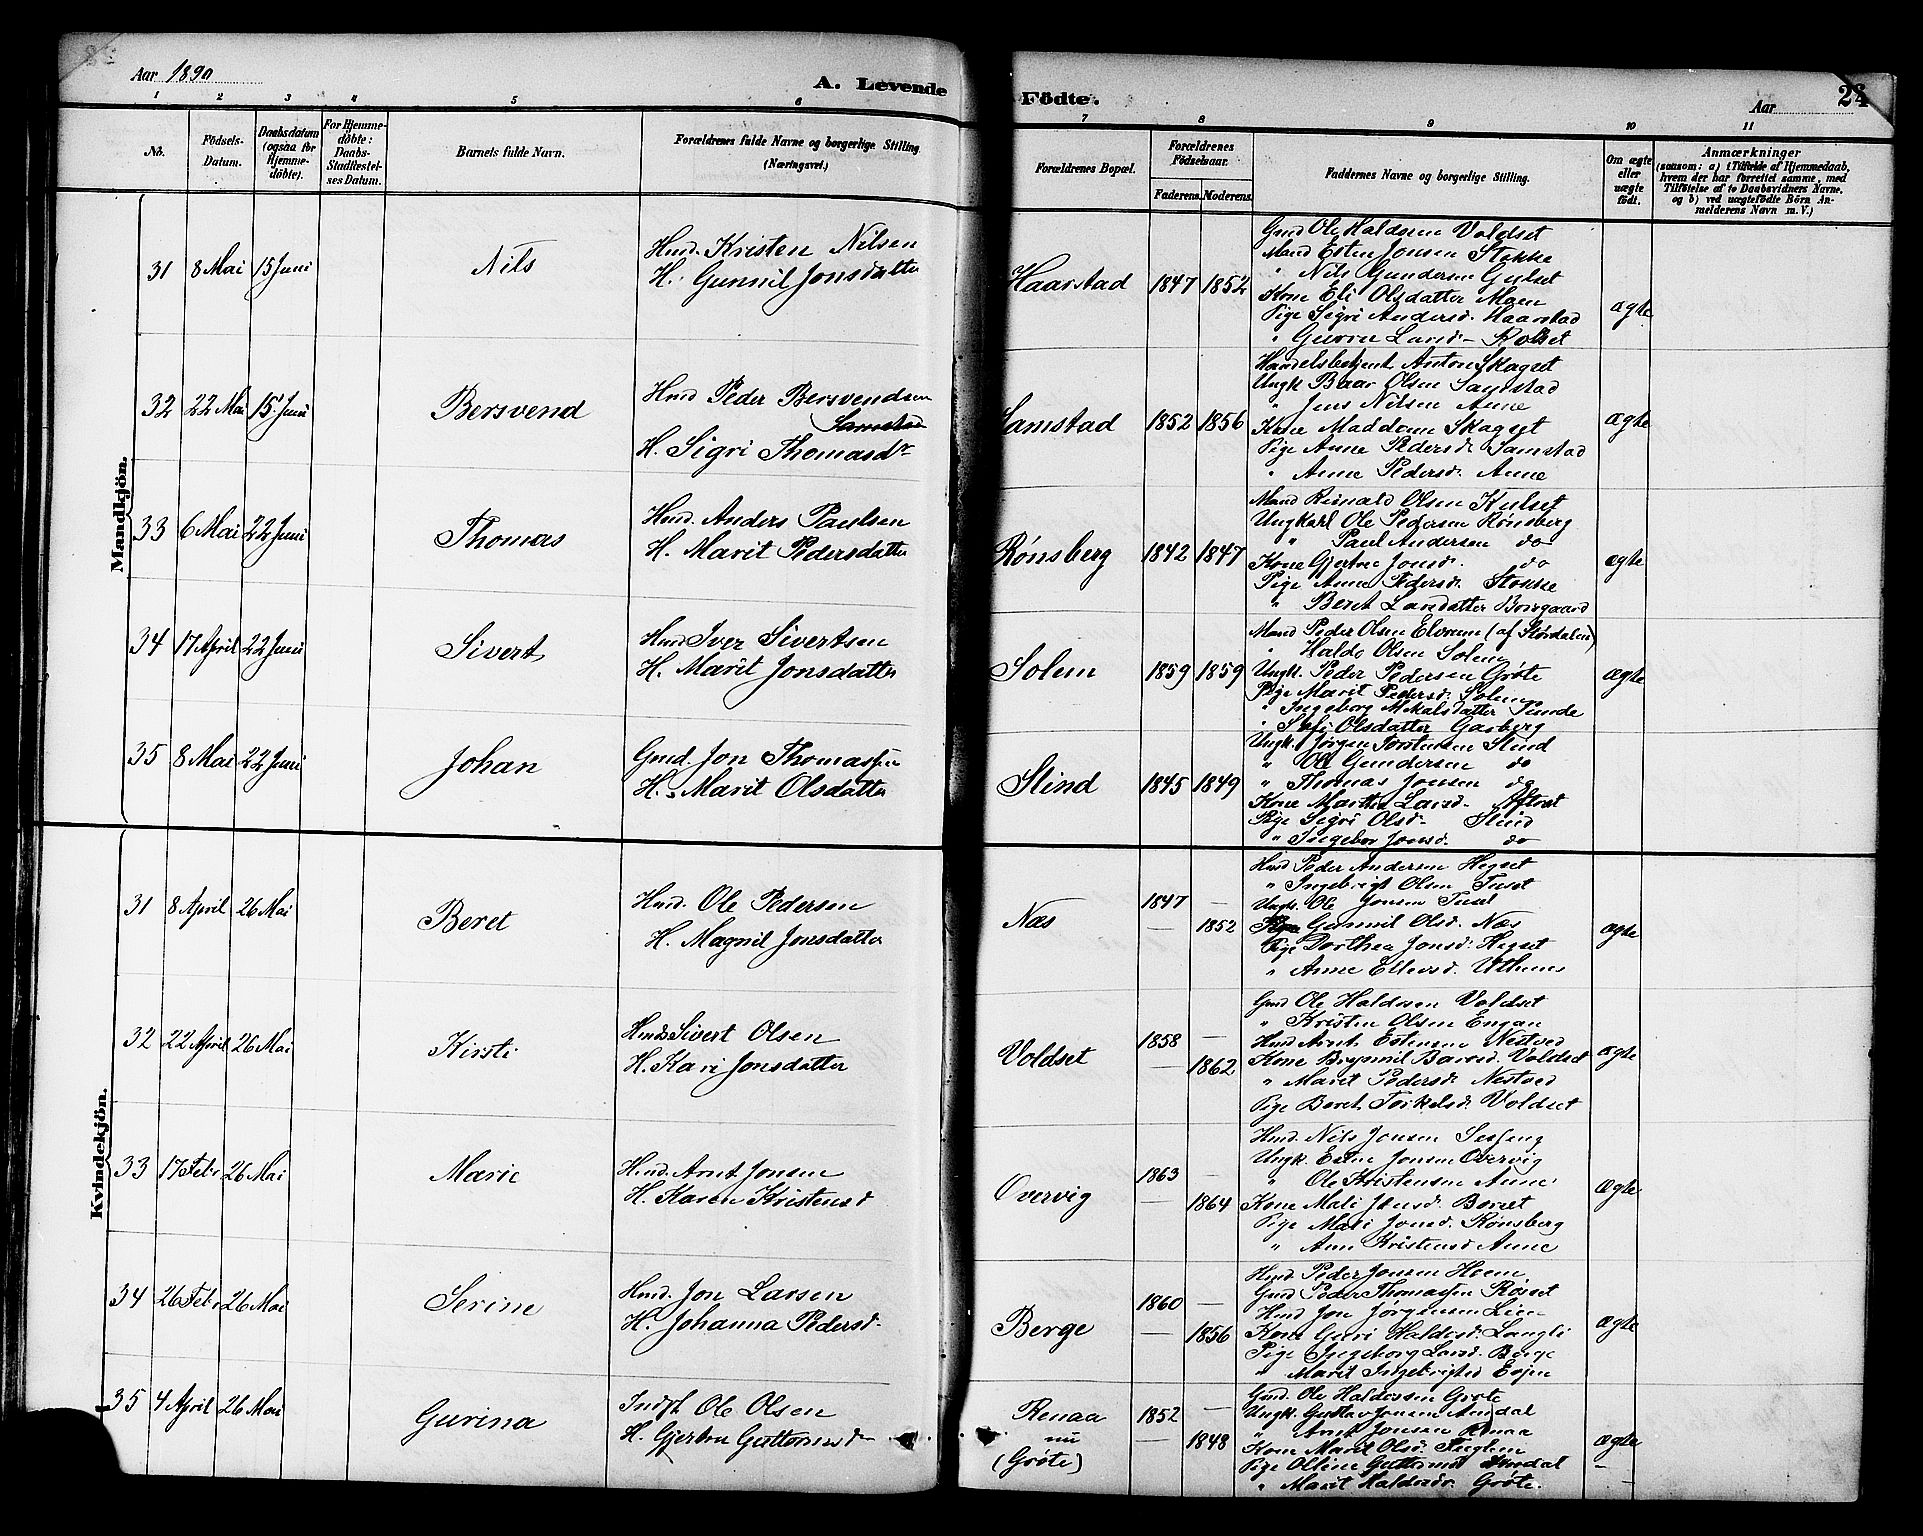 Aar 1890
A. Levende Födte.
Aar 24
1 2 3 4 5 6 7 8 9 10 11
No.
Födsels-Datum.
Daabsdatum (ogsaa for Hjemmedöbte).
For Hjemmedöbte: Daabs-Stadfæstelses Datum.
Barnets fulde Navn.
Forældrenes fulde Navne og borgerlige Stilling (Næringsvei.)
Forældrenes Bopæl.
Forældrenes Födselsaar.
Faderens. Moderens.
Faddernes Navne og borgerlige Stilling.
Om ægte eller uægte födt.
Anmærkninger
(saasom: a) i Tilfælde af Hjemmedaab, hvem der har forrettet samme, med Tilföielse af to Daabsvidners Navne, og b) ved uægtefödte Börn Anmelderens Navn m. V.)
Mandkjön.
31 8 Mai 15 Juni Nils
Hmd. Kristen Nilsen
H. Gunnil Jonsdatter
Haarstad 1847 1852
Gmd Ole Haldosen Voldset
Mand Esten Jonsen Stokke
" Nils Gundersen Gulset
Kone Eli Olsdatter Moen
Pige Sigri Andersd. Haarstad
" Gurru Larsd- Rolset
ægte
32 22 Mai 15 Juni Bersvend
Hmd Peder Bersvendsen
Samstad
H. Sigri Thomasdr
Samstad 1852 1856
Handelsbetjent Anton Skagset
Ungk Baar Olsen Samstad
" Jens Nilsen Aune
Kone Maddem Skagset
Pige Anne Pedersd. Samstad
" Anne Pedersd. Aune
ægte
33 6 Mai 22 Juni Thomas
Hmd. Anders Paulsen
H. Marit Pedersdatter
Rønsberg 1842 1847
Mand Reinald Olsen Kulset
Ungkarl Ole Pedersen Rønsberg
" Paul Andersen do
Kone Gjertru Jonsd. do
Pige Anne Pedersd. Stokke
" Beret Larsdatter Borsgaard
ægte
34 17 April 22 Juni Sivert
Hmd Iver Sivertsen
H. Marit Jonsdatter
Solem 1859 1859
Mand Peder Olsen Elvrum (af Stördalen)
" Haldo Olsen Solem
Ungk. Peder Pedersen Grøte
Pige Marit Pedersd. Solem
" Ingeborg Mikalsdatter Tunde
" Sofi Olsdatter Garberg
ægte
35 8 Mai 22 Juni Johan
Gmd. Jon Thomassen
H. Marit Olsdatter
Slind 1845 1849
Ungk. Jørgen Torstensen Slind
" Ole Gundersen do
" Thomas Jonsen do
Kone Martha Larsd. Aftret
Pige Sigri Olsd. Slind
" Ingebor Jonsd. do
Kvindekjön.
31 8 April 26 Mai Beret
Hmd. Ole Pedersen
H. Magnil Jonsdatter
Næs 1847 —
— 1852
Hmd Peder Andersen Hegset
" Ingebrigt Olsen Tuset
Ungk. Ole Jonsen Tuset
Kone Gunnil Olsd. Næs
Pige Dorthea Jonsd. Hegset
" Anne Ellevsd. Uthuus
ægte
32 22 April 26 Mai Kirsti
Hmd. Sivert Olsen
H. Kari Jonsdatter
Voldset 1858 —
— 1862
Gmd Ole Haldosen Voldset
" Kristen Olsen Engan
Hmd Arnt Estensen Nestved
Kone Brynnil Barsd. Voldset
" Marit Pedersd. Nestved
Pige Beret Torkelsd. Voldset
ægte
33 17 Febr 26 Mai Marie
Hmd. Arnt Jonsen
H. Karen Kristensd
Overvig 1863 —
— 1864
Hmd. Nils Jonsen Sesseng
Ungk. Esten Jonsen Overvig
" Ole Kristensen Aune
Kone Mali Jonsd. Boret
Pige Mali Jonsd. Rønsberg
" Ann Kristensd Aune
Ægte
34 26 Febr 26 Mai Serine
Hmd. Jon Larsen
H. Johanna Pedersd.
Berge 1860 —
— 1856
Hmd Peder Jonsen Hoem
Gmd Peder Thomassen Röset
Hmd Jon Jørgensen Lien
Kone Guri Haldosd. Langli
Pige Ingeborg Larsd. Berge
" Marit Ingebrigtsd Evjen
Ægte
35 4 April 26 Mai Gurina
Indst. Ole Olsen
H. Gjertru Guttormsd
Renaa
nu
(Grøte) 1852 —
— 1848
Gmd. Ole Haldosen Grøte
Ungk. Gustav Jonsen Amdal
" Arnt Jonsen Renaa
Kone Marit Olsd. Fuglem
Pige Olline Guttormsd Amdal
" Marit Haldosdr Grøte.
Ægte